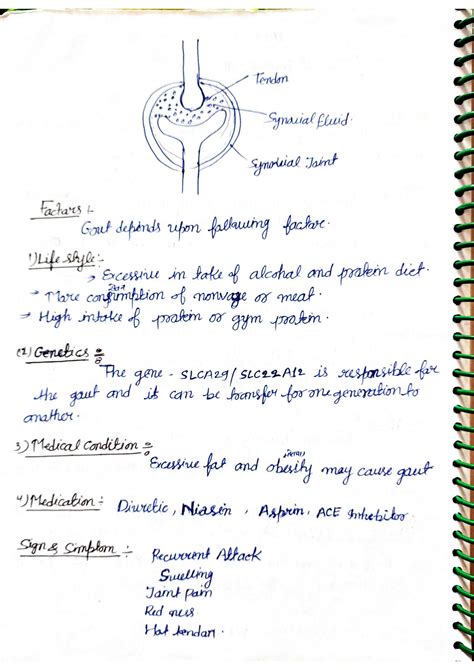 Tendon
Synovial fluid.
Synovial Joint
Factors :-
Gout depends upon following factor.
1) Life style :-
→ Excessive in take of alcohol and protein diet.
→ More consumption of nonvage or meat.
→ High intake of protein or gym protein.
(2) Genetics :-
The gene - SLCA29/SLC22A12 is responsible for
the gout and it can be transfer for one generation to
another.
3) Medical Condition :-
Excessive fat and obesity may cause gout
4) Medication :- Diuretic, Niasin, Asprin, ACE Inhebitor.
Sign & Simptom :- Recurrent Attack
Swelling
Joint pain
Red ness.
Hot tendon.